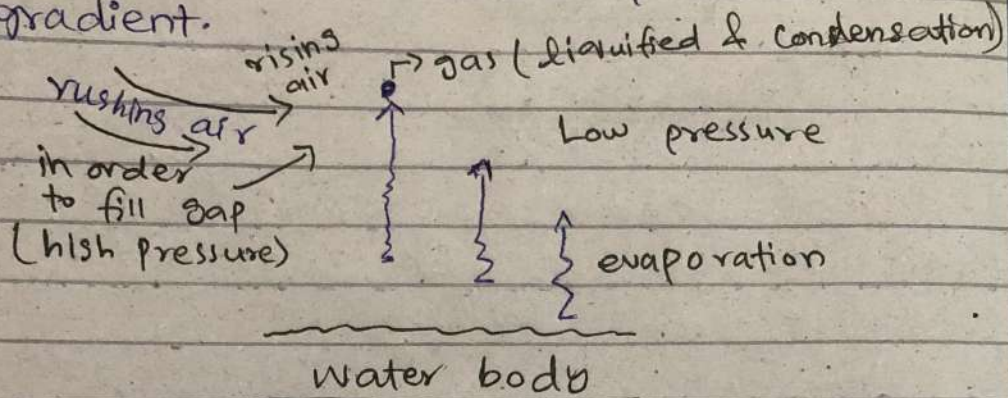 gradient.
rising
air
gas (liquified & condensation)
rushing air
Low pressure
in order
to fill gap
(high pressure)
evaporation
water body